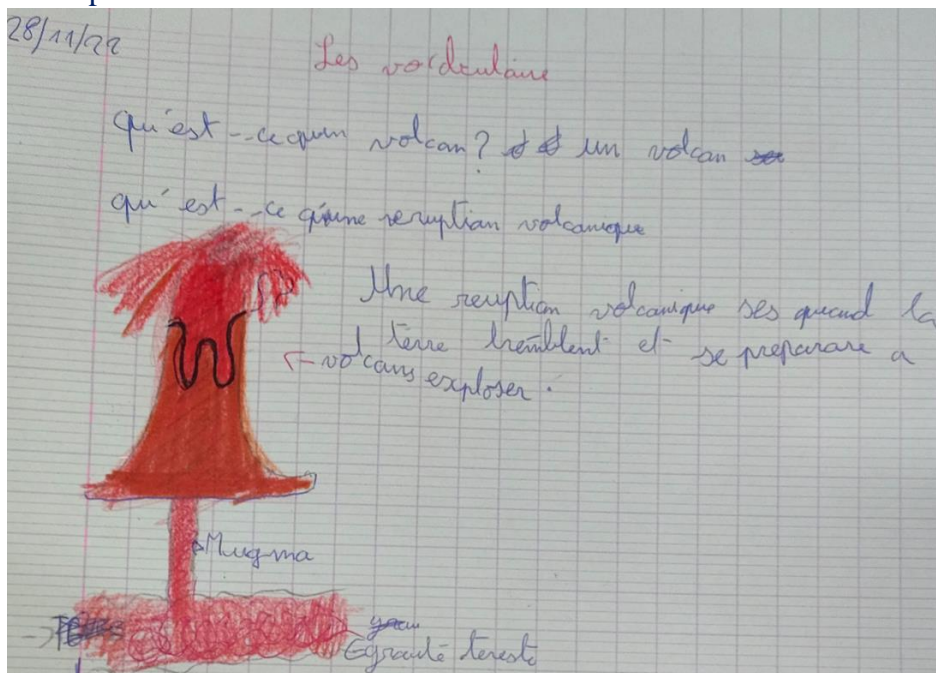 28/11/22
Les vordculaire
qu'est--ce qu'un volcan? un volcan
qu'est--ce qu'une reruption volcanique
Une reuption volcanique ses quand la
terre tremblent et se preparare a
exploser.
volcans
Mugma
terest